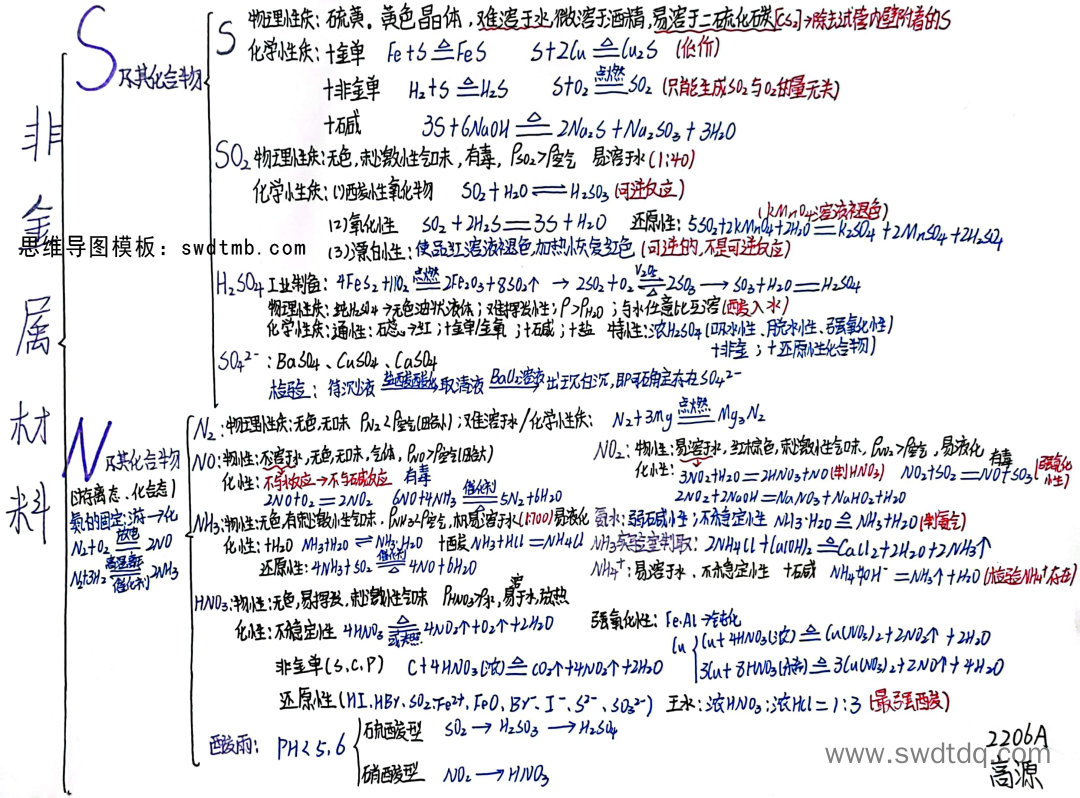 非金属材料
S及其化合物
S
物理性质：硫黄。黄色晶体，难溶于水，微溶于酒精，易溶于二硫化碳[CS2]→除去试管内壁附着的S
化学性质：+金单 Fe+S≜FeS S+2Cu≜Cu2S (低价)
+非金单 H2+S≜H2S S+O2 点燃 SO2 (只能生成SO2与O2的量无关)
+石碱 3S+6NaOH≜2Na2S+Na2SO3+3H2O
SO2 物理性质：无色，刺激性气味，有毒，ρSO2>ρ空气 易溶于水(1:40)
化学性质：(1)酸性氧化物 SO2+H2O⇌H2SO3 (可逆反应)
(KMnO4溶液褪色)
(2)氧化性 SO2+2H2S=3S+H2O 还原性：5SO2+2KMnO4+2H2O=K2SO4+2MnSO4+2H2SO4
思维导图模板：swdtmb.com
(3)漂白性：使品红溶液褪色，加热恢复红色 (可逆的，不是可逆反应)
H2SO4 工业制备：4FeS2+11O2 点燃 2Fe2O3+8SO2↑ → 2SO2+O2 V2O5 △ 2SO3 → SO3+H2O=H2SO4
物理性质：纯H2SO4→无色油状液体；难挥发性；ρ>ρH2O；与水任意比互溶(酸入水)
化学性质：通性：石蕊→红；+金单/金氧；+石碱；+盐 特性：浓H2SO4(吸水性、脱水性、强氧化性)
+非金；+还原性化合物)
SO4²⁻：BaSO4、CuSO4、CaSO4
检验：待沉液 盐酸酸化→取清液 BaCl2溶液→出现白沉，即可确定存在SO4²⁻
N及其化合物
(游离态、化合态)
氮的固定：游→化
N2+O2 放电 2NO
N2+3H2 高温高压 催化剂 2NH3
N2：物理性质：无色，无味 ρN2<ρ空气(略小)；难溶于水/化学性质： N2+3Mg 点燃 Mg3N2
NO：物性：不溶于水，无色，无味，气体，ρNO>ρ空气(略大)
化性：不与水反应→不与碱反应 有毒
2NO+O2=2NO2 6NO+4NH3 催化剂 5N2+6H2O
NO2：物性：易溶于水，红棕色，刺激性气味，ρNO2>ρ空气，易液化 有毒
化性：3NO2+H2O=2HNO3+NO(制HNO3) NO2+SO2=NO+SO3(强氧化性)
2NO2+2NaOH=NaNO3+NaHO2+H2O
NH3：物性：无色有刺激性气味，ρNH3<ρ空气，极易溶于水(1:700)易液化
化性：+H2O NH3+H2O⇌NH3·H2O +酸 NH3+HCl=NH4Cl
还原性：4NH3+5O2 催化剂 △ 4NO+6H2O
氨水：弱石碱性；不稳定性 NH3·H2O≜NH3+H2O(制氨气)
NH3实验室制取：2NH4Cl+Ca(OH)2≜CaCl2+2H2O+2NH3↑
NH4⁺：易溶于水、不稳定性 +石碱 NH4⁺+OH⁻=NH3↑+H2O (检验NH4⁺存在)
HNO3：物性：无色，易挥发，刺激性气味 ρHNO3>ρ水，易溶于水，放热
化性：不稳定性 4HNO3 △ 或光照 4NO2↑+O2↑+2H2O
强氧化性：Fe.Al→钝化
Cu
Cu+4HNO3(浓)≜Cu(NO3)2+2NO2↑+2H2O
3Cu+8HNO3(稀)≜3Cu(NO3)2+2NO↑+4H2O
非金单(S,C,P) C+4HNO3(浓)≜CO2↑+4NO2↑+2H2O
还原性(HI、HBr、SO2、Fe²⁺、FeO、Br⁻、I⁻、S²⁻、SO3²⁻) 王水：浓HNO3：浓HCl=1:3 (最强酸)
酸雨：PH<5.6
硫酸型 SO2→H2SO3→H2SO4
硝酸型 NO2→HNO3
www.swdtdq.com
2206A
高源